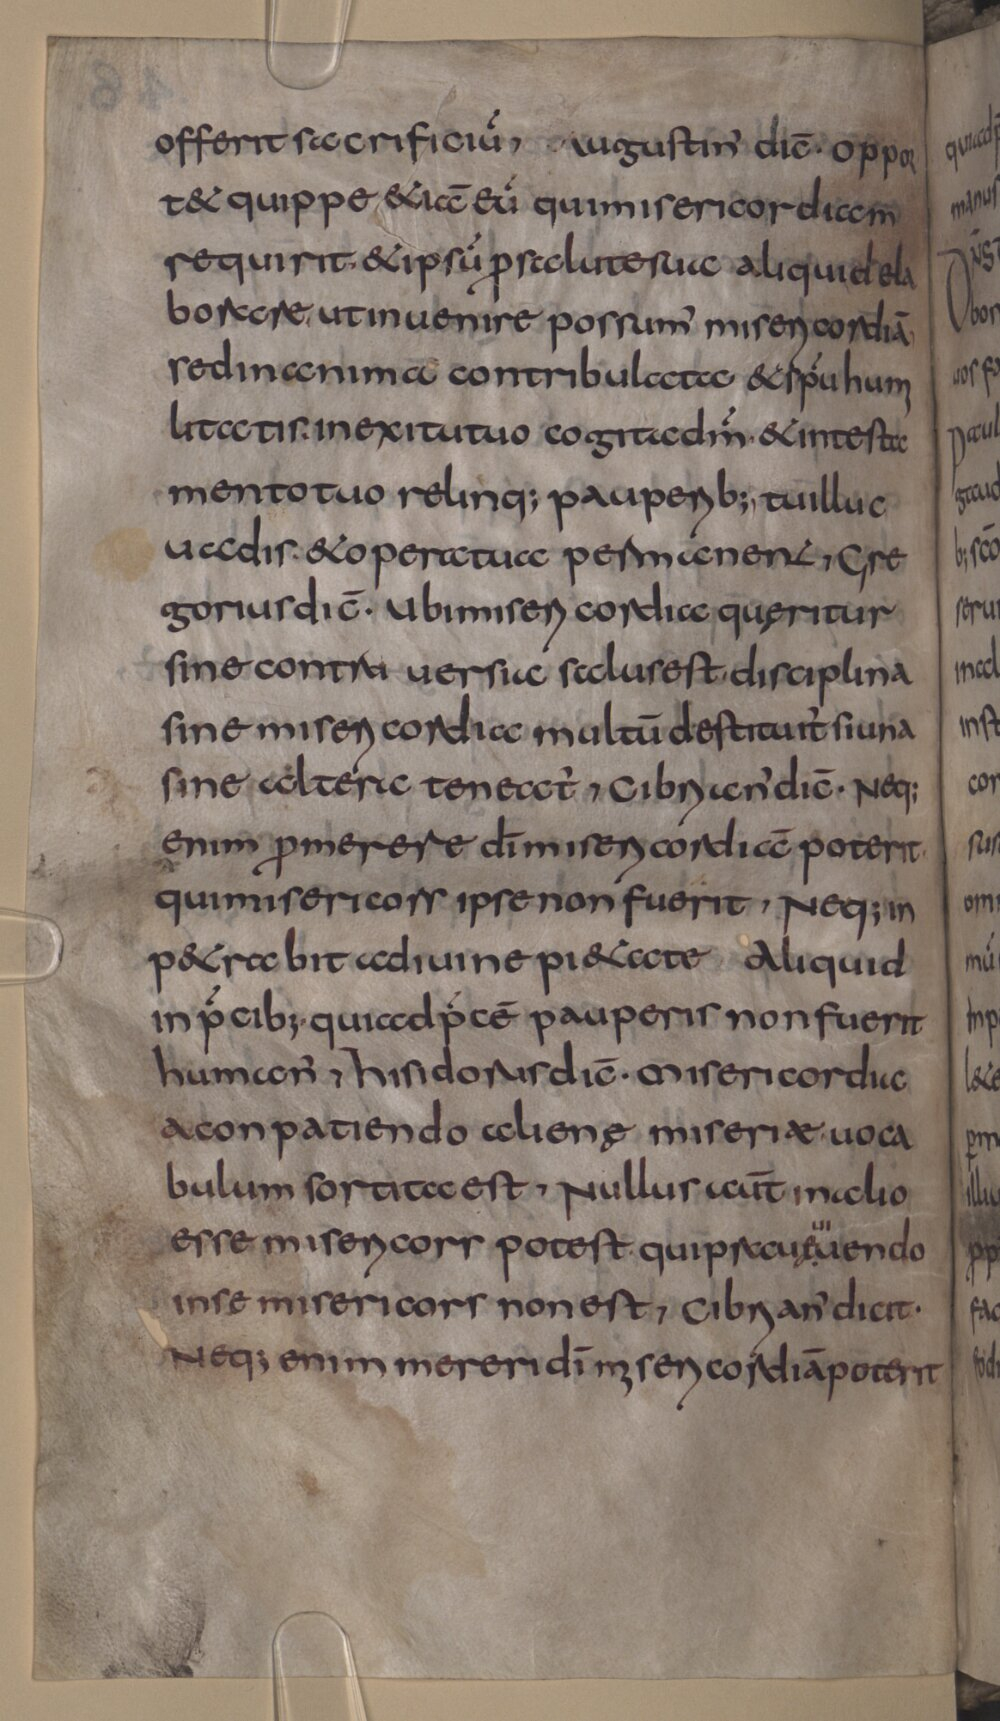 offerit sacrificiū, Augustin' dic̄. oppor
t& quippe & iac̄ eū qui misericordiam
requirit. & ipsū p̄ salute sua aliquid ela
borare, ut invenire possum' misericordiā,
sed in anima contribulata & sp̄u humi
litatis. in exitu tuo cogita dn̄m. & in testa
mento tuo relinq; pauperib; tu illuc
vadis. & opera tua permanent, Gre
gorius dic̄. Ubi misericordia quęritur
sine contra versia salus est. disciplina
sine misericordia multū destituit' si una
sine altera teneat', Cibrian' dic̄. Neq;
enim p̄merere dī misericordiā poterit.
qui misericors ipse non fuerit, Neq; in
p&rabit a divine pi&ate Aliquid
in p̄cib; qui ad p̄cē pauperis non fuerit
human', hisidorus dic̄. Misericordia
a conpatiendo alienę miseriæ voca
bulum sortita est, Nullus aut̄ in alio
esse misericors potest. qui prave vivendo
in se misericors non est, Cibrian' dicit.
Neq; enim mereri dī misericordiā poterit